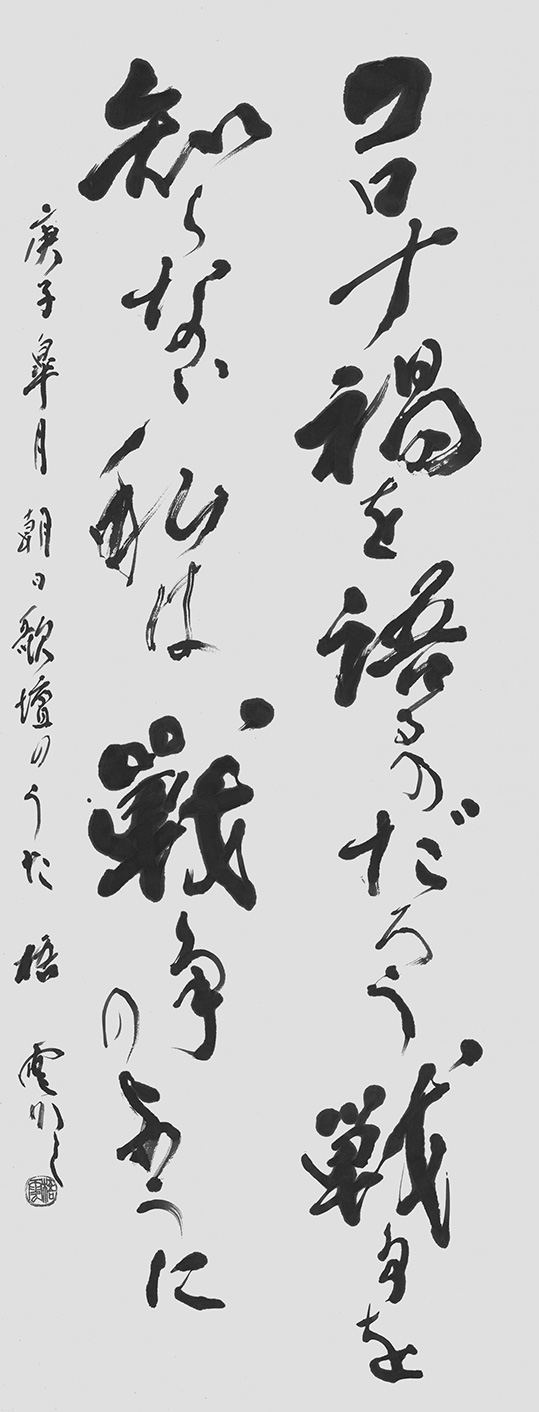 コロナ禍を語るのだろう戦争を
知らない私は戦争のように
庚子皐月 朝日歌壇のうた 梧雲